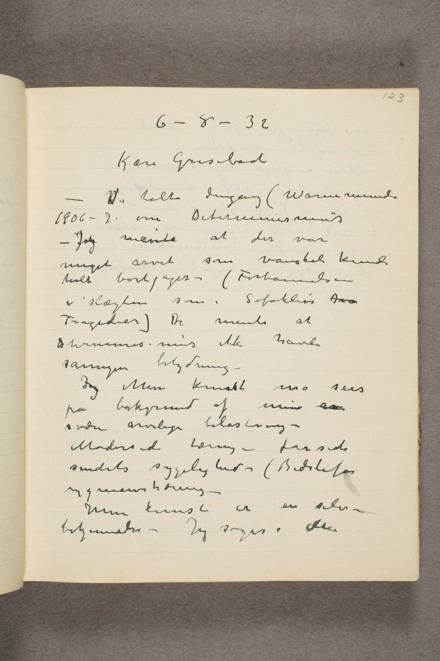 123
6 – 8 – 32
Kære Grisebach
– Vi talte engang (Warnemünde
1906–7. om Determinismus
– Jeg mente at der var
meget arvet som vanskelig kunde
helt bortjages – (Forbannelsen
i slægten som i Sofokles
Tragedier) De mente at
Determinis-mus ikke havde
saamegen betydning –
Jeg Min kunst må sees
på bakgrund af min
svære arvelige belastning –
Modersid tæring – farsids
sindets sygelighed – (Bedstefar
rygmarvstæring –
Min kunst er en selv-
bekjennelse – Jeg søger i den